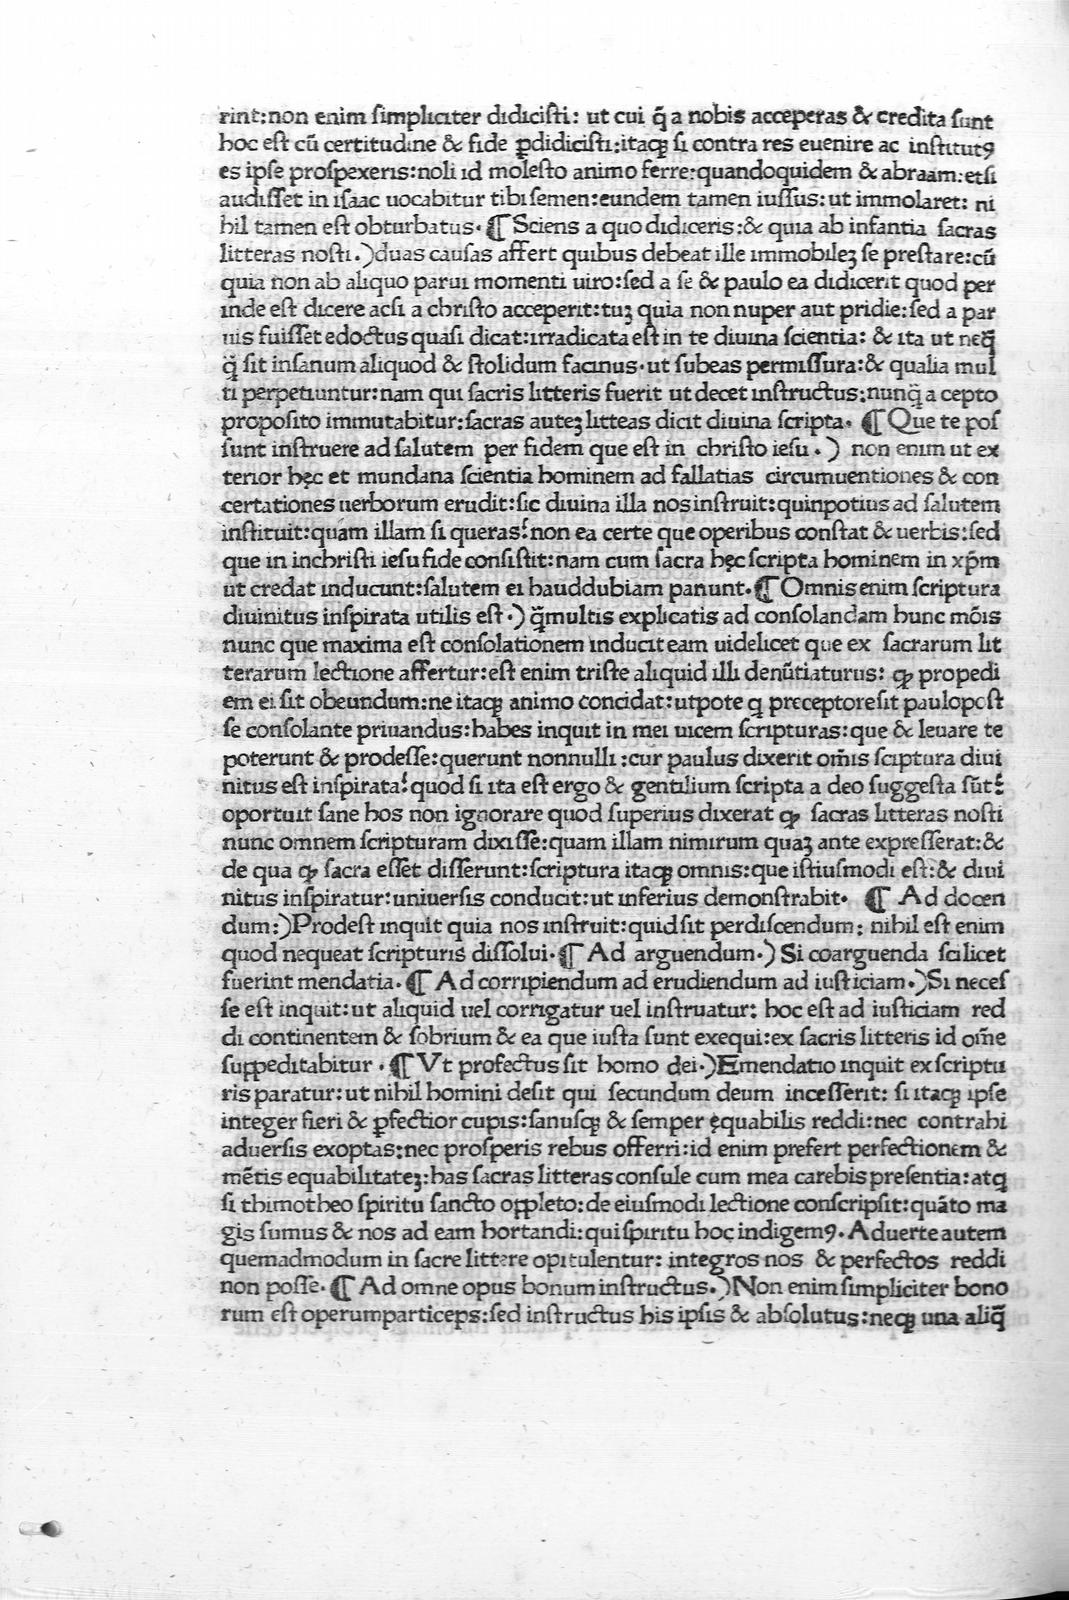 rint:non enim ſimpliciter didiciſti: ut cui q̃ a nobis acceperas & credita ſunt
hoc eſt cũ certitudine & fide ꝑdidiciſti:itaqꝫ ſi contra res euenire ac inſtitutꝰ
es ipſe proſpexeris:noli id moleſto animo ferre:quandoquidem & abraam:etſi
audiſſet in iſaac uocabitur tibi ſemen:eundem tamen iuſſus: ut immolaret: ni
hil tamen eſt obturbatus. ¶ Sciens a quo didiceris:& quia ab infantia ſacras
litteras noſti.)duas cauſas affert quibus debeat ille immobileꝫ ſe preſtare:cũ
quia non ab aliquo parui momenti uiro:ſed a ſe & paulo ea didicerit quod per
inde eſt dicere acſi a chriſto acceperit:tuꝫ quia non nuper aut pridie:ſed a par
uis fuiſſet edoctus quaſi dicat:irradicata eſt in te diuina ſcientia: & ita ut neq̃
q̃ ſit inſanum aliquod & ſtolidum facinus.ut ſubeas permiſſura:& qualia mul
ti perpetiuntur:nam qui ſacris litteris fuerit ut decet inſtructus:nunq̃ a cepto
propoſito immutabitur:ſacras auteꝫ litteas dicit diuina ſcripta. ¶ Que te poſ
ſunt inſtruere ad ſalutem per fidem que eſt in chriſto ieſu.) non enim ut ex
terior hęc et mundana ſcientia hominem ad fallatias circumuentiones & con
certationes uerborum erudit:ſic diuina illa nos inſtruit:quinpotius ad ſalutem
inſtituit:quam illam ſi queras? non ea certe que operibus conſtat & uerbis:ſed
que in inchriſti ieſu fide conſiſtit:nam cum ſacra hęc ſcripta hominem in xp̄m
ut credat inducunt:ſalutem ei hauddubiam pariunt.¶ Omnis enim ſcriptura
diuinitus inſpirata utilis eſt.) q̃multis explicatis ad conſolandam hunc mōis
nunc que maxima eſt conſolationem inducit eam uidelicet que ex ſacrarum lit
terarum lectione affertur:eſt enim triſte aliquid illi denũtiaturus: ꝙ propedi
em ei ſit obeundum:ne itaqꝫ animo concidat:utpote q preceptoreſit paulopoſt
ſe conſolante priuandus:habes inquit in mei uicem ſcripturas:que & leuare te
poterunt & prodeſſe:querunt nonnulli:cur paulus dixerit om̄is ſciptura diui
nitus eſt inſpirata? quod ſi ita eſt ergo & gentilium ſcripta a deo ſuggeſta ſũt?
oportuit ſane hos non ignorare quod ſuperius dixerat ꝙ ſacras litteras noſti
nunc omnem ſcripturam dixiſſe:quam illam nimirum quaꝫ ante expreſſerat:&
de qua ꝙ ſacra eſſet diſſerunt:ſcriptura itaqꝫ omnis:que iſtiuſmodi eſt:& diui
nitus inſpiratur:uniuerſis conducit:ut inferius demonſtrabit. ¶ Ad docen
dum:)Prodeſt inquit quia nos inſtruit:quidſit perdiſcendum: nihil eſt enim
quod nequeat ſcripturis diſſolui.¶ Ad arguendum.) Si coarguenda ſcilicet
fuerint mendatia.¶ Ad corripiendum ad erudiendum ad iuſticiam.)Si neceſ
ſe eſt inquit:ut aliquid uel corrigatur uel inſtruatur: hoc eſt ad iuſticiam red
di continentem & ſobrium & ea que iuſta ſunt exequi:ex ſacris litteris id om̄e
ſuppeditabitur .¶ Vt profectus ſit homo dei.)Emendatio inquit ex ſcriptu
ris paratur:ut nihil homini deſit qui ſecundum deum inceſſerit: ſi itaqꝫ ipſe
integer fieri & ꝑfectior cupis:ſanuſqꝫ & ſemper ęquabilis reddi:nec contrahi
aduerſis exoptas:nec proſperis rebus offerri:id enim prefert perfectionem &
mẽtis equabilitateꝫ:has ſacras litteras conſule cum mea carebis preſentia:atqꝫ
ſi thimotheo ſpiritu ſancto oppleto:de eiuſmodi lectione conſcripſit:quãto ma
gis ſumus & nos ad eam hortandi:qui ſpiritu hoc indigemꝰ.Aduerte autem
quemadmodum in ſacre littere opitulentur: integros nos & perfectos reddi
non poſſe.¶ Ad omne opus bonum inſtructus.)Non enim ſimpliciter bono
rum eſt operumparticeps:ſed inſtructus his ipſis & abſolutus:neqꝫ una aliq̃